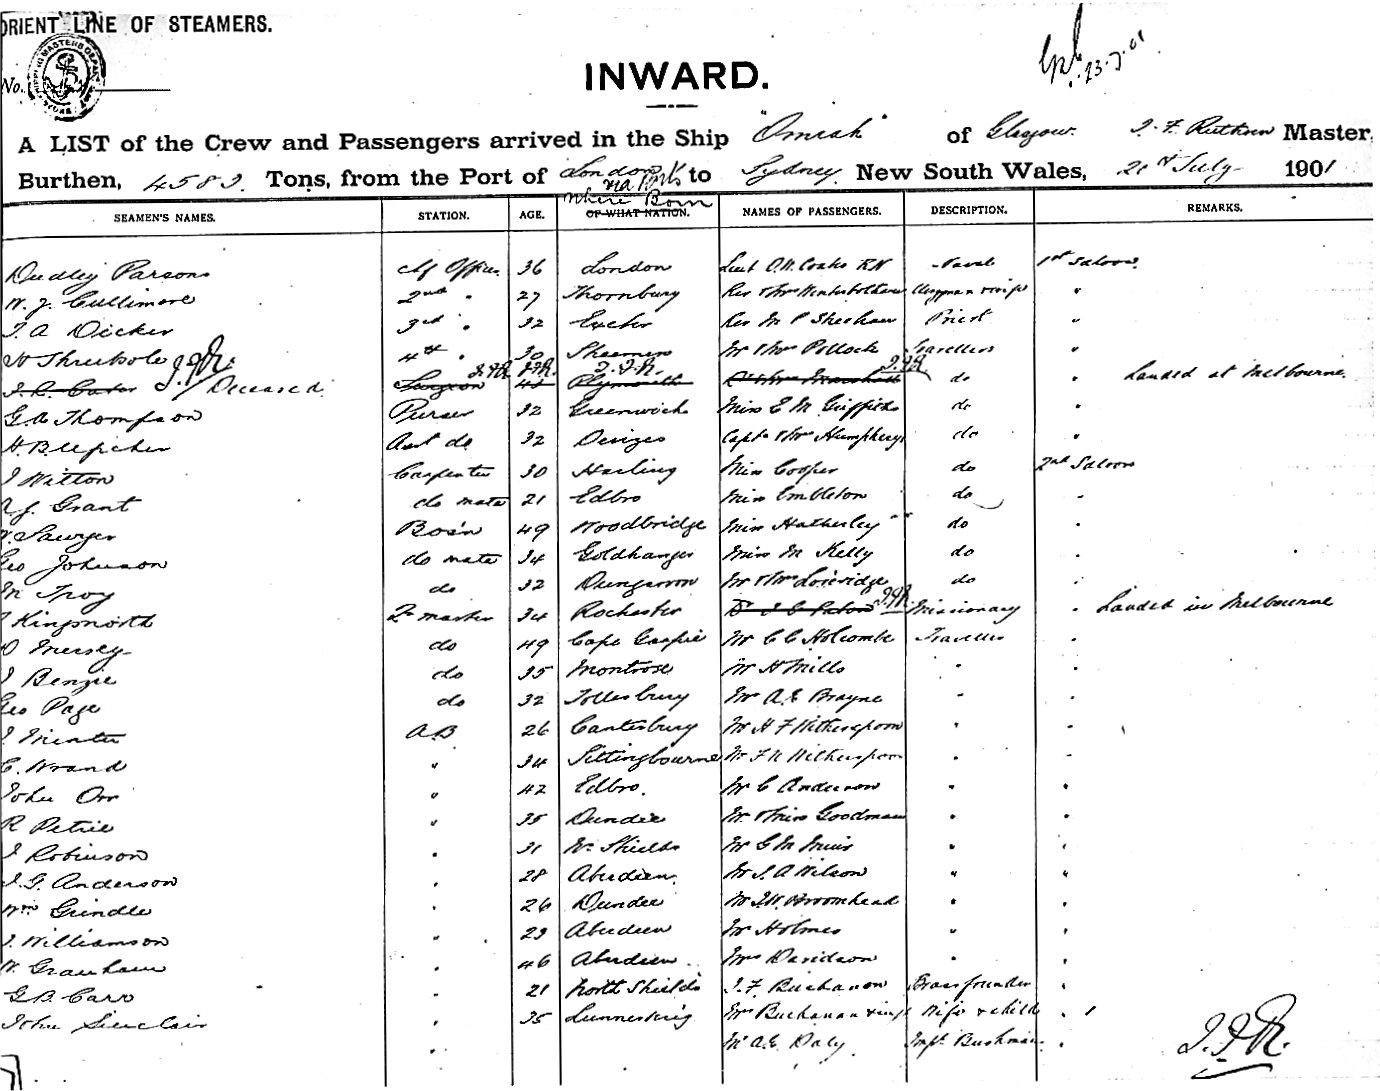 ORIENT LINE OF STEAMERS.
23.7.01
No.
INWARD.
A LIST of the Crew and Passengers arrived in the Ship "Omrah" of Glasgow. J. F. Ruthven Master,
Burthen, 4583. Tons, from the Port of London via Ports to Sydney New South Wales, 21st July 1901
Where Born
SEAMEN'S NAMES. STATION. AGE. OF WHAT NATION. NAMES OF PASSENGERS. DESCRIPTION. REMARKS.
Dudley Parsons Chf Officer 36 London Lieut O.W. Coaks RN Naval 1st Saloon.
W. J. Cullimore 2nd " 27 Thornbury Rev & Mrs Winterbotham Clergyman & wife "
J. A Dicker 3rd " 32 Exeter Rev M P Sheehan Priest "
4th " 30 Mr & Mrs Pollock Travellers "
J.F.R. Deceased Surgeon J.F.R. J.F.R. Plymouth J.F.R. do " Landed at Melbourne.
G.A Thompson Purser 32 Greenwich Miss E M Griffiths do "
H Asst do 32 Devizes Capt & Mrs Humpherys do "
J Witton Carpenter 30 Harling Miss Cooper do 2nd Saloon
Grant do mate 21 Edbro Miss Embleton do "
Sawyer Bos'n 49 Woodbridge Miss Hatherley do "
Geo Johnson do mate 34 Goldhanger Miss M Kelly do "
M Troy do 32 Dungarvon Mr & Mrs Loveridge do "
J Kingsnorth Qr master 34 Rochester J.F.R. Missionary " Landed in Melbourne
O Mersey do 49 Cape Mr C C Holcombe Traveller "
J Benzie do 35 Montrose Mr H Mills " "
Geo Page do 32 Tollesbury Mr A.E. Brayne " "
J Minter A.B 26 Canterbury Mr H F Witherspoon " "
C. Wrand " 34 Sittingbourne Mr F N Witherspoon " "
John Orr " 42 Edbro. Mr C Anderson " "
R Petrie " 35 Dundee Mr & Miss Goodman " "
J Robinson " 31 No. Shields Mr G M Muir " "
J. G. Anderson " 28 Aberdeen. Mr J. A Wilson " "
Wm Grindle " 26 Dundee Mr J.W. Broomhead " "
J. Williamson " 29 Aberdeen Mr Holmes " "
W. " 46 Aberdeen Mrs Davidson " "
G.B. Carr " 21 North Shields J. F. Buchanan Brassfounder "
John Sinclair " 35 Mrs Buchanan & inft Wife & child "
" Mr A.E. Daly Impl Bushman "
J.F.R.